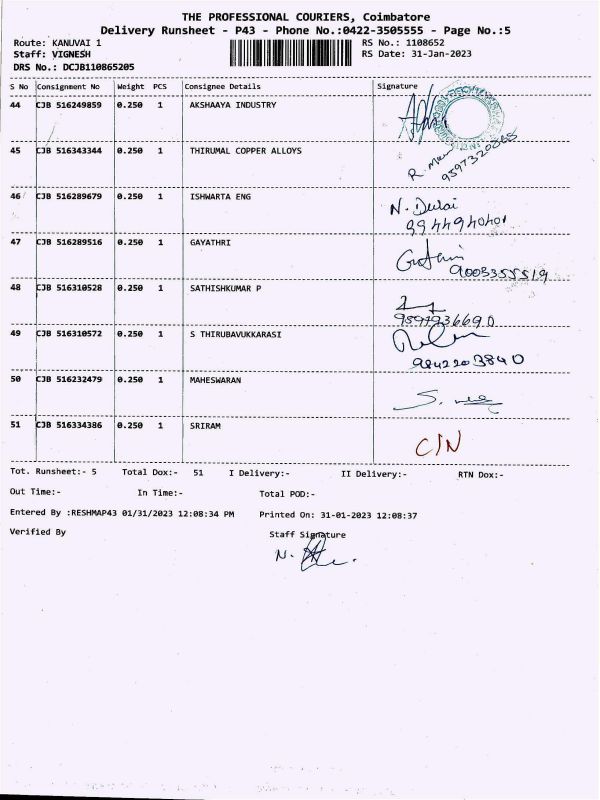 THE PROFESSIONAL COURIERS, Coimbatore
Delivery Runsheet - P43 - Phone No.:0422-3505555 - Page No.:5
Route: KANUVAI 1 RS No.: 1108652
Staff: VIGNESH RS Date: 31-Jan-2023
DRS No.: DCJB110865205
S No Consignment No Weight PCS Consignee Details Signature
44 CJB 516249859 0.250 1 AKSHAAYA INDUSTRY
45 CJB 516343344 0.250 1 THIRUMAL COPPER ALLOYS
R.
9597320365
46 CJB 516289679 0.250 1 ISHWARTA ENG N.
9944940401
47 CJB 516289516 0.250 1 GAYATHRI
9003355519
48 CJB 516310528 0.250 1 SATHISHKUMAR P
9597936690
49 CJB 516310572 0.250 1 S THIRUBAVUKKARASI
9842203840
50 CJB 516232479 0.250 1 MAHESWARAN S.
51 CJB 516334386 0.250 1 SRIRAM C/N
Tot. Runsheet:- 5 Total Dox:- 51 I Delivery:- II Delivery:- RTN Dox:-
Out Time:- In Time:- Total POD:-
Entered By :RESHMAP43 01/31/2023 12:08:34 PM Printed On: 31-01-2023 12:08:37
Verified By Staff Signature
N.